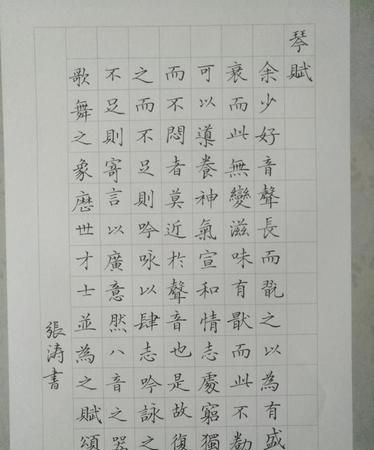 琴賦
余少好音聲長而翫之以為有盛
衰而此無變滋味有猒而此不勌
可以導養神氣宣和情志處窮獨
而不悶者莫近於聲音也是故復
之而不足則吟咏以肆志吟詠之
不足則寄言以廣意然八音之器
歌舞之象歷世才士並為之賦頌
張涛書